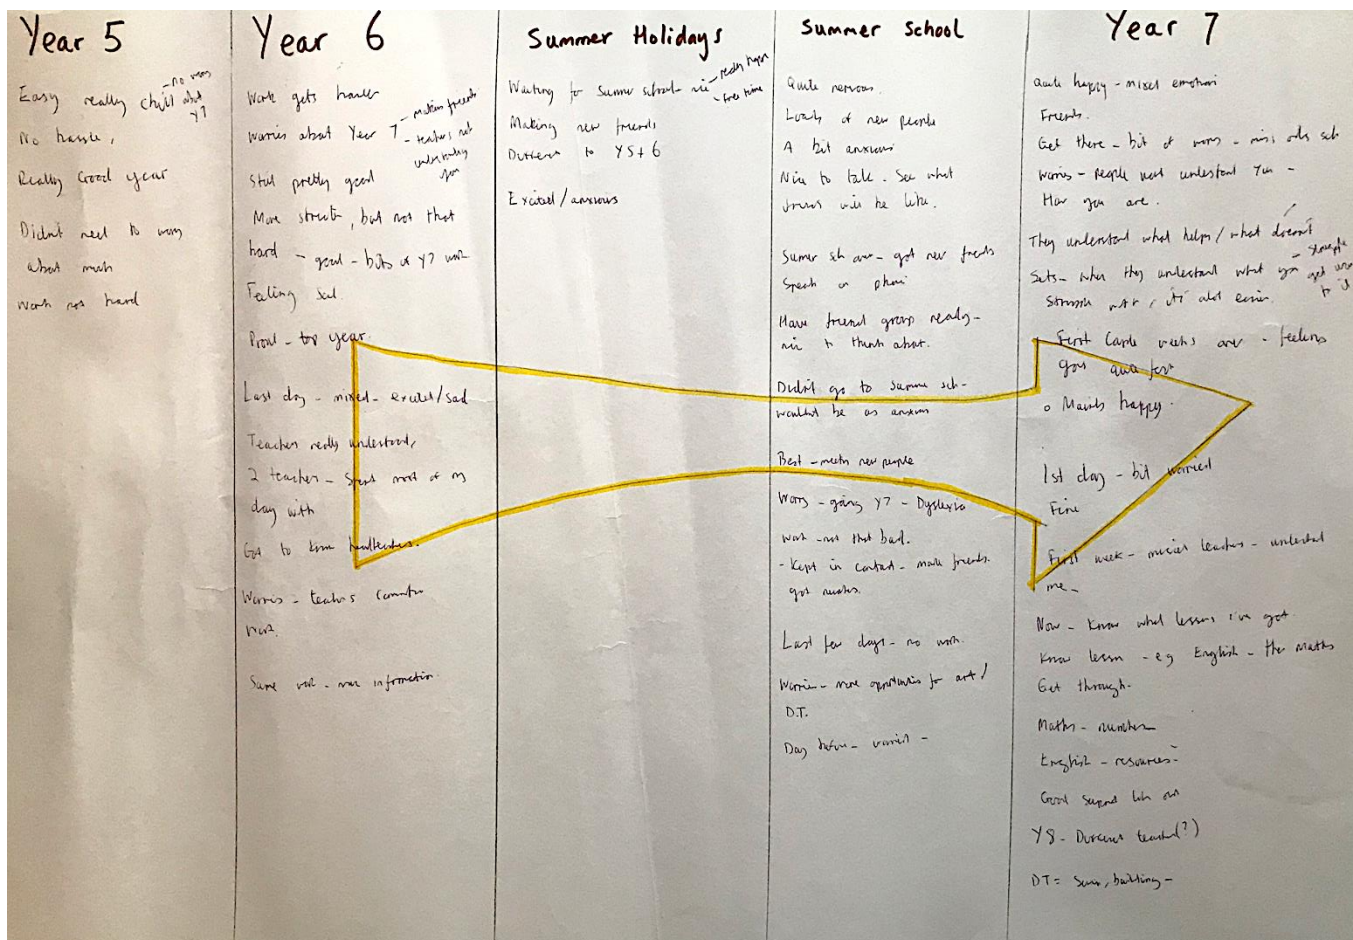 Year 5
Easy really chill - no worry about Y7
No hassle,
Really Good year
Didn't need to worry
about much
Work not hard
Year 6
Work gets harder
Worries about Year 7 - making friends
- teachers not
understanding
you
Still pretty good
More stricter, but not that
hard - good - bits of Y7 work
Feeling sad
Proud - top year.
Last day - mixed - excited/sad
Teacher really understood,
2 teachers - spent most of my
day with
Got to know headteacher.
Worries - teachers
work.
Same work - more information.
Summer Holidays
Waiting for summer school - nice - really happy
- free time
Making new friends
Different to Y5 + 6
Excited / anxious
Summer School
Quite nervous.
Loads of new people
A bit anxious
Nice to talk. See what
friends will be like.
Summer sch over - got new friends
Speak on phone
Have friend group ready -
nice to think about.
Didn't go to summer sch -
wouldn't be as anxious
Best - meeting new people
Worry - going Y7 - Dyslexia
work - not that bad.
- Kept in contact - made friends.
got numbers.
Last few days - no work.
Worries - more opportunities for art /
D.T.
Day before - worried -
Year 7
Quite happy - mixed emotion
Friends.
Get there - bit of worry - miss old sch
Worries - People not understand you -
How you are.
They understand what helps / what doesn't
Sets - when they understand what you struggle
struggle with, it's alot easier. get used
to it
First couple weeks over - feelings
gone quite far
o Mainly happy.
1st day - bit worried
Fine
First week - nicer teachers - understand
me -
Now - Know what lessons I've got.
Know lesson - eg English - then Maths
Get through.
Maths - number
English - resources -
Good support
Y8 - Different teacher (?)
DT = building -